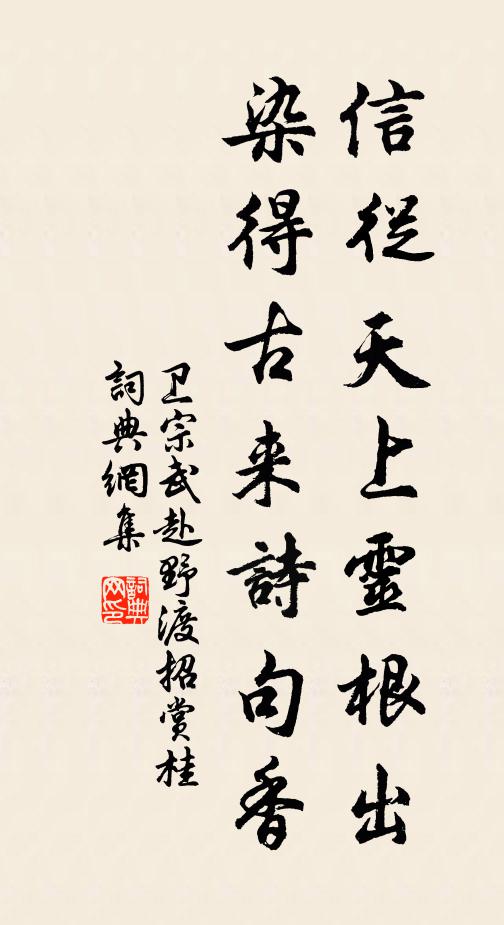 信從天上靈根出
染得古来詩句香
卫宗武赴野渡招賞桂
詞典網集
詞典網印